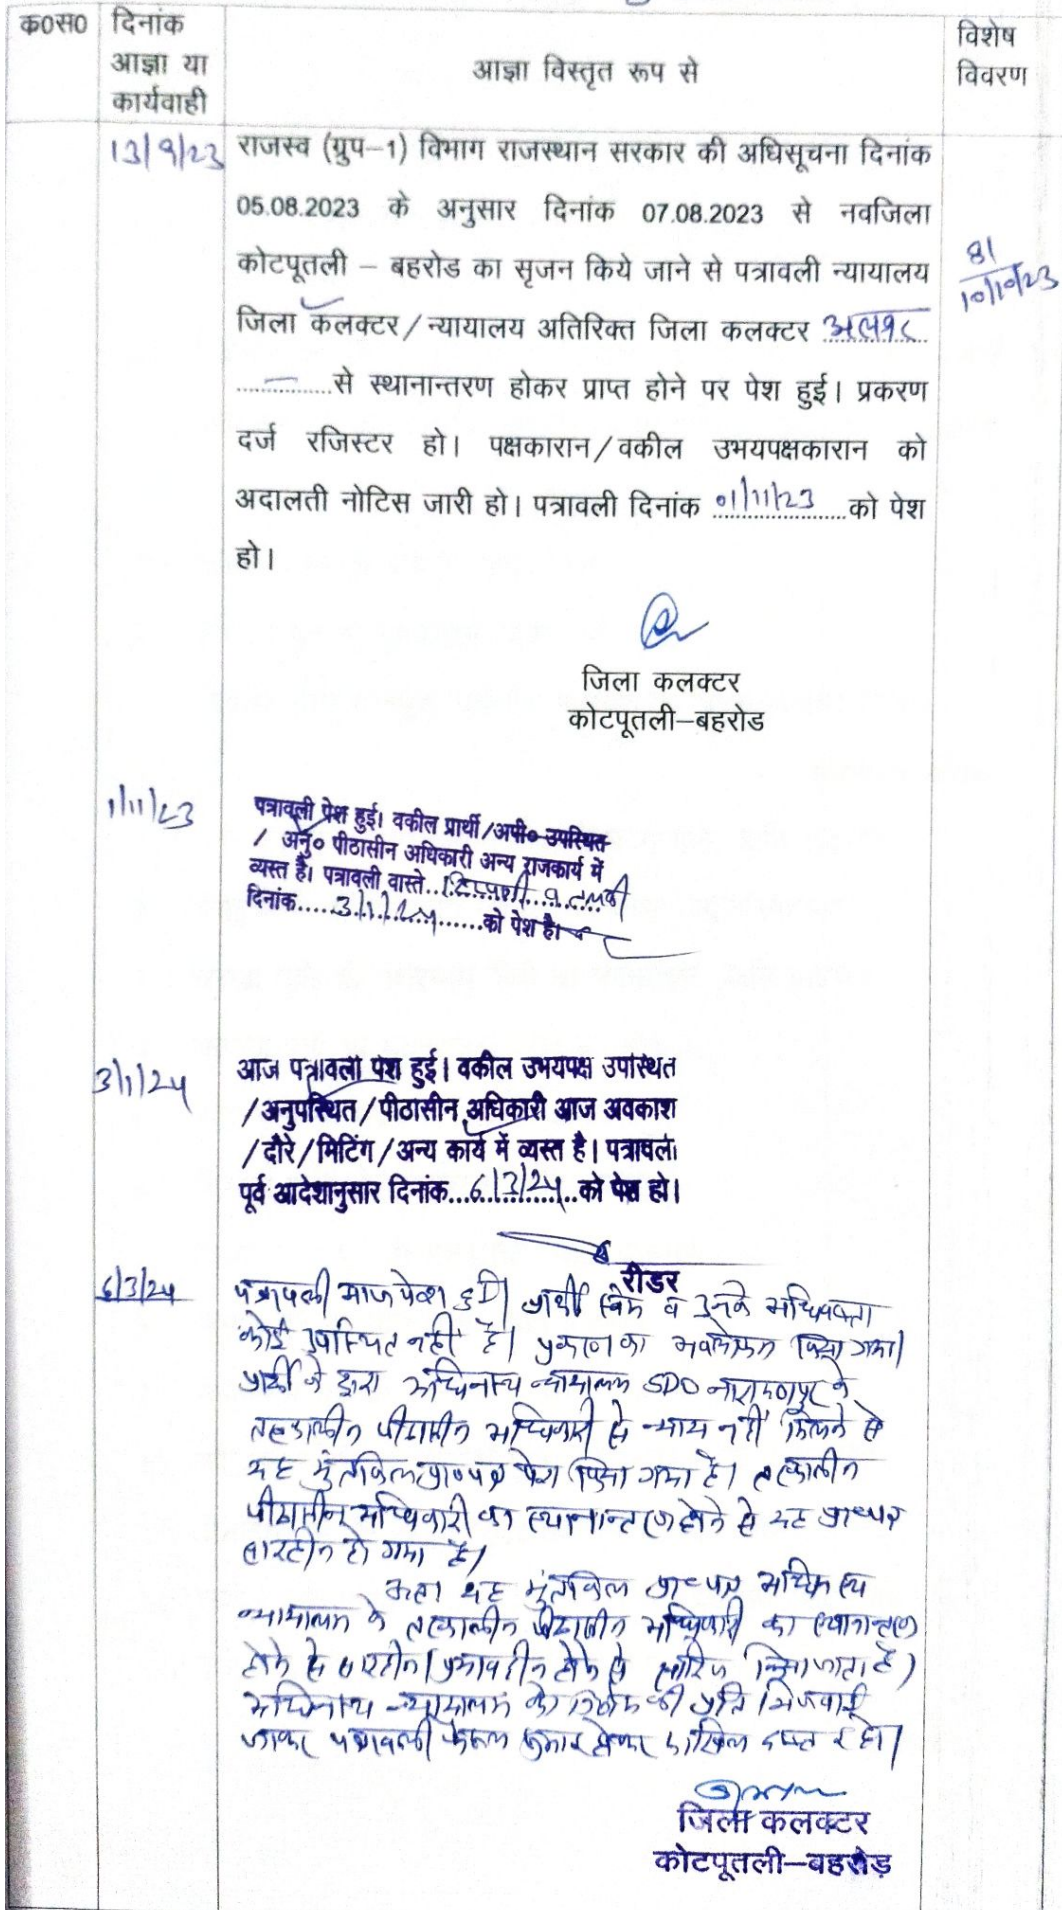 क०स० दिनांक आज्ञा या कार्यवाही आज्ञा विस्तृत रूप से विशेष विवरण
13/9/23 राजस्व (ग्रुप–1) विभाग राजस्थान सरकार की अधिसूचना दिनांक
05.08.2023 के अनुसार दिनांक 07.08.2023 से नवजिला
कोटपूतली – बहरोड का सृजन किये जाने से पत्रावली न्यायालय
81
10/10/23
जिला कलक्टर/न्यायालय अतिरिक्त जिला कलक्टर अलवर
............... से स्थानान्तरण होकर प्राप्त होने पर पेश हुई। प्रकरण
दर्ज रजिस्टर हो। पक्षकारान/वकील उभयपक्षकारान को
अदालती नोटिस जारी हो। पत्रावली दिनांक 01/11/23 को पेश
हो।
जिला कलक्टर
कोटपूतली–बहरोड
1/11/23 पत्रावली पेश हुई। वकील प्रार्थी/अपी० उपस्थित
/ अनु० पीठासीन अधिकारी अन्य राजकार्य में
व्यस्त है। पत्रावली वास्ते.. टिप्पणी व तलबी
दिनांक.....3/1/24......को पेश है।
3/1/24 आज पत्रावली पेश हुई। वकील उभयपक्ष उपस्थित
/अनुपस्थित/पीठासीन अधिकारी आज अवकाश
/दौरे/मिटिंग/अन्य कार्य में व्यस्त है। पत्रावली
पूर्व आदेशानुसार दिनांक...6/3/24...को पेश हो।
रीडर
6/3/24 पत्रावली आज पेश हुई। प्रार्थी स्वयं व उनके अधिवक्ता
कोई उपस्थित नहीं है। प्रकरण का अवलोकन किया गया।
प्रार्थी के द्वारा अधिनस्थ न्यायालय SDO नारायणपुर के
तत्कालीन पीठासीन अधिकारी से न्याय नहीं मिलने से
यह मुंतकिल प्रा०पत्र पेश किया गया है। तत्कालीन
पीठासीन अधिकारी का स्थानान्तरण होने से यह प्रा०पत्र
सारहीन हो गया है।
अतः यह मुंतकिल प्रा०पत्र अधिनस्थ
न्यायालय के तत्कालीन पीठासीन अधिकारी का स्थानान्तरण
होने से सारहीन/प्रभावहीन होने से खारिज किया जाता है।
अधिनस्थ न्यायालय को निर्णय की प्रति भिजवाई
जाकर पत्रावली फैसल शुमार होकर दाखिल दफ्तर हो।
जिला कलक्टर
कोटपूतली–बहरोड़